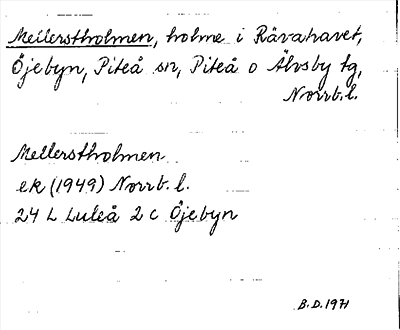 Mellerstholmen, holme i Rävahavet,
Öjebyn, Piteå sn, Piteå o Älvsby tg,
Norrb. l.
Mellerstholmen
ek (1949) Norrb. l.
24 L Luleå 2 c Öjebyn
B.D. 1971